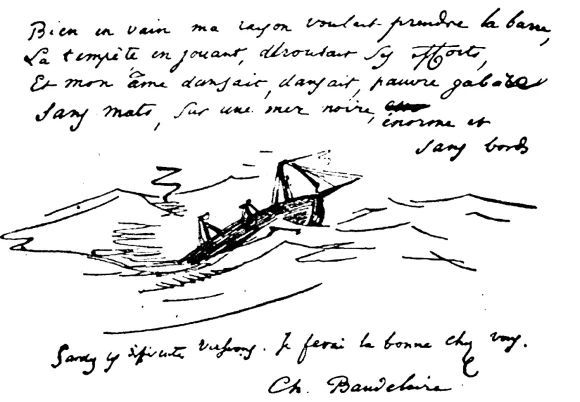 Bien en vain ma raison voulait prendre la barre,
La tempête en jouant, déroutait ses efforts,
Et mon âme dansait, dansait, pauvre gabare
Sans mats, sur une mer noire,
énorme et
sans bords
Gardez versions. Je ferai la bonne chez vous.
Ch. Baudelaire